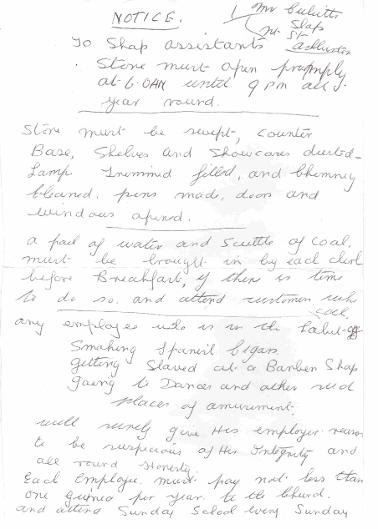 NOTICE.
Mr Cubitts
Shop
St
Ashburton
To Shop assistants
Store must open promptly
at 6.0AM until 9 PM all
year round.
Store must be swept, counter
Base, Shelves and Showcases dusted-
Lamp Trimmed filled, and Chimney
Cleaned. pens made, doors and
windows opened.
a pail of water and Scuttle of Coal,
must be brought in by each clerk
before Breakfast, if there is time
to do so. and attend customers who
call,
any employee who is in the habit of
Smoking Spanish Cigars
getting Shaved at a Barber Shop
going to Dances and other such
places of amusement.
will surely give His employer reason
to be suspicious of His Integrity and
all round Honesty.
Each Employee must pay not less than
one guinea per year to the Church.
and attend Sunday School every Sunday